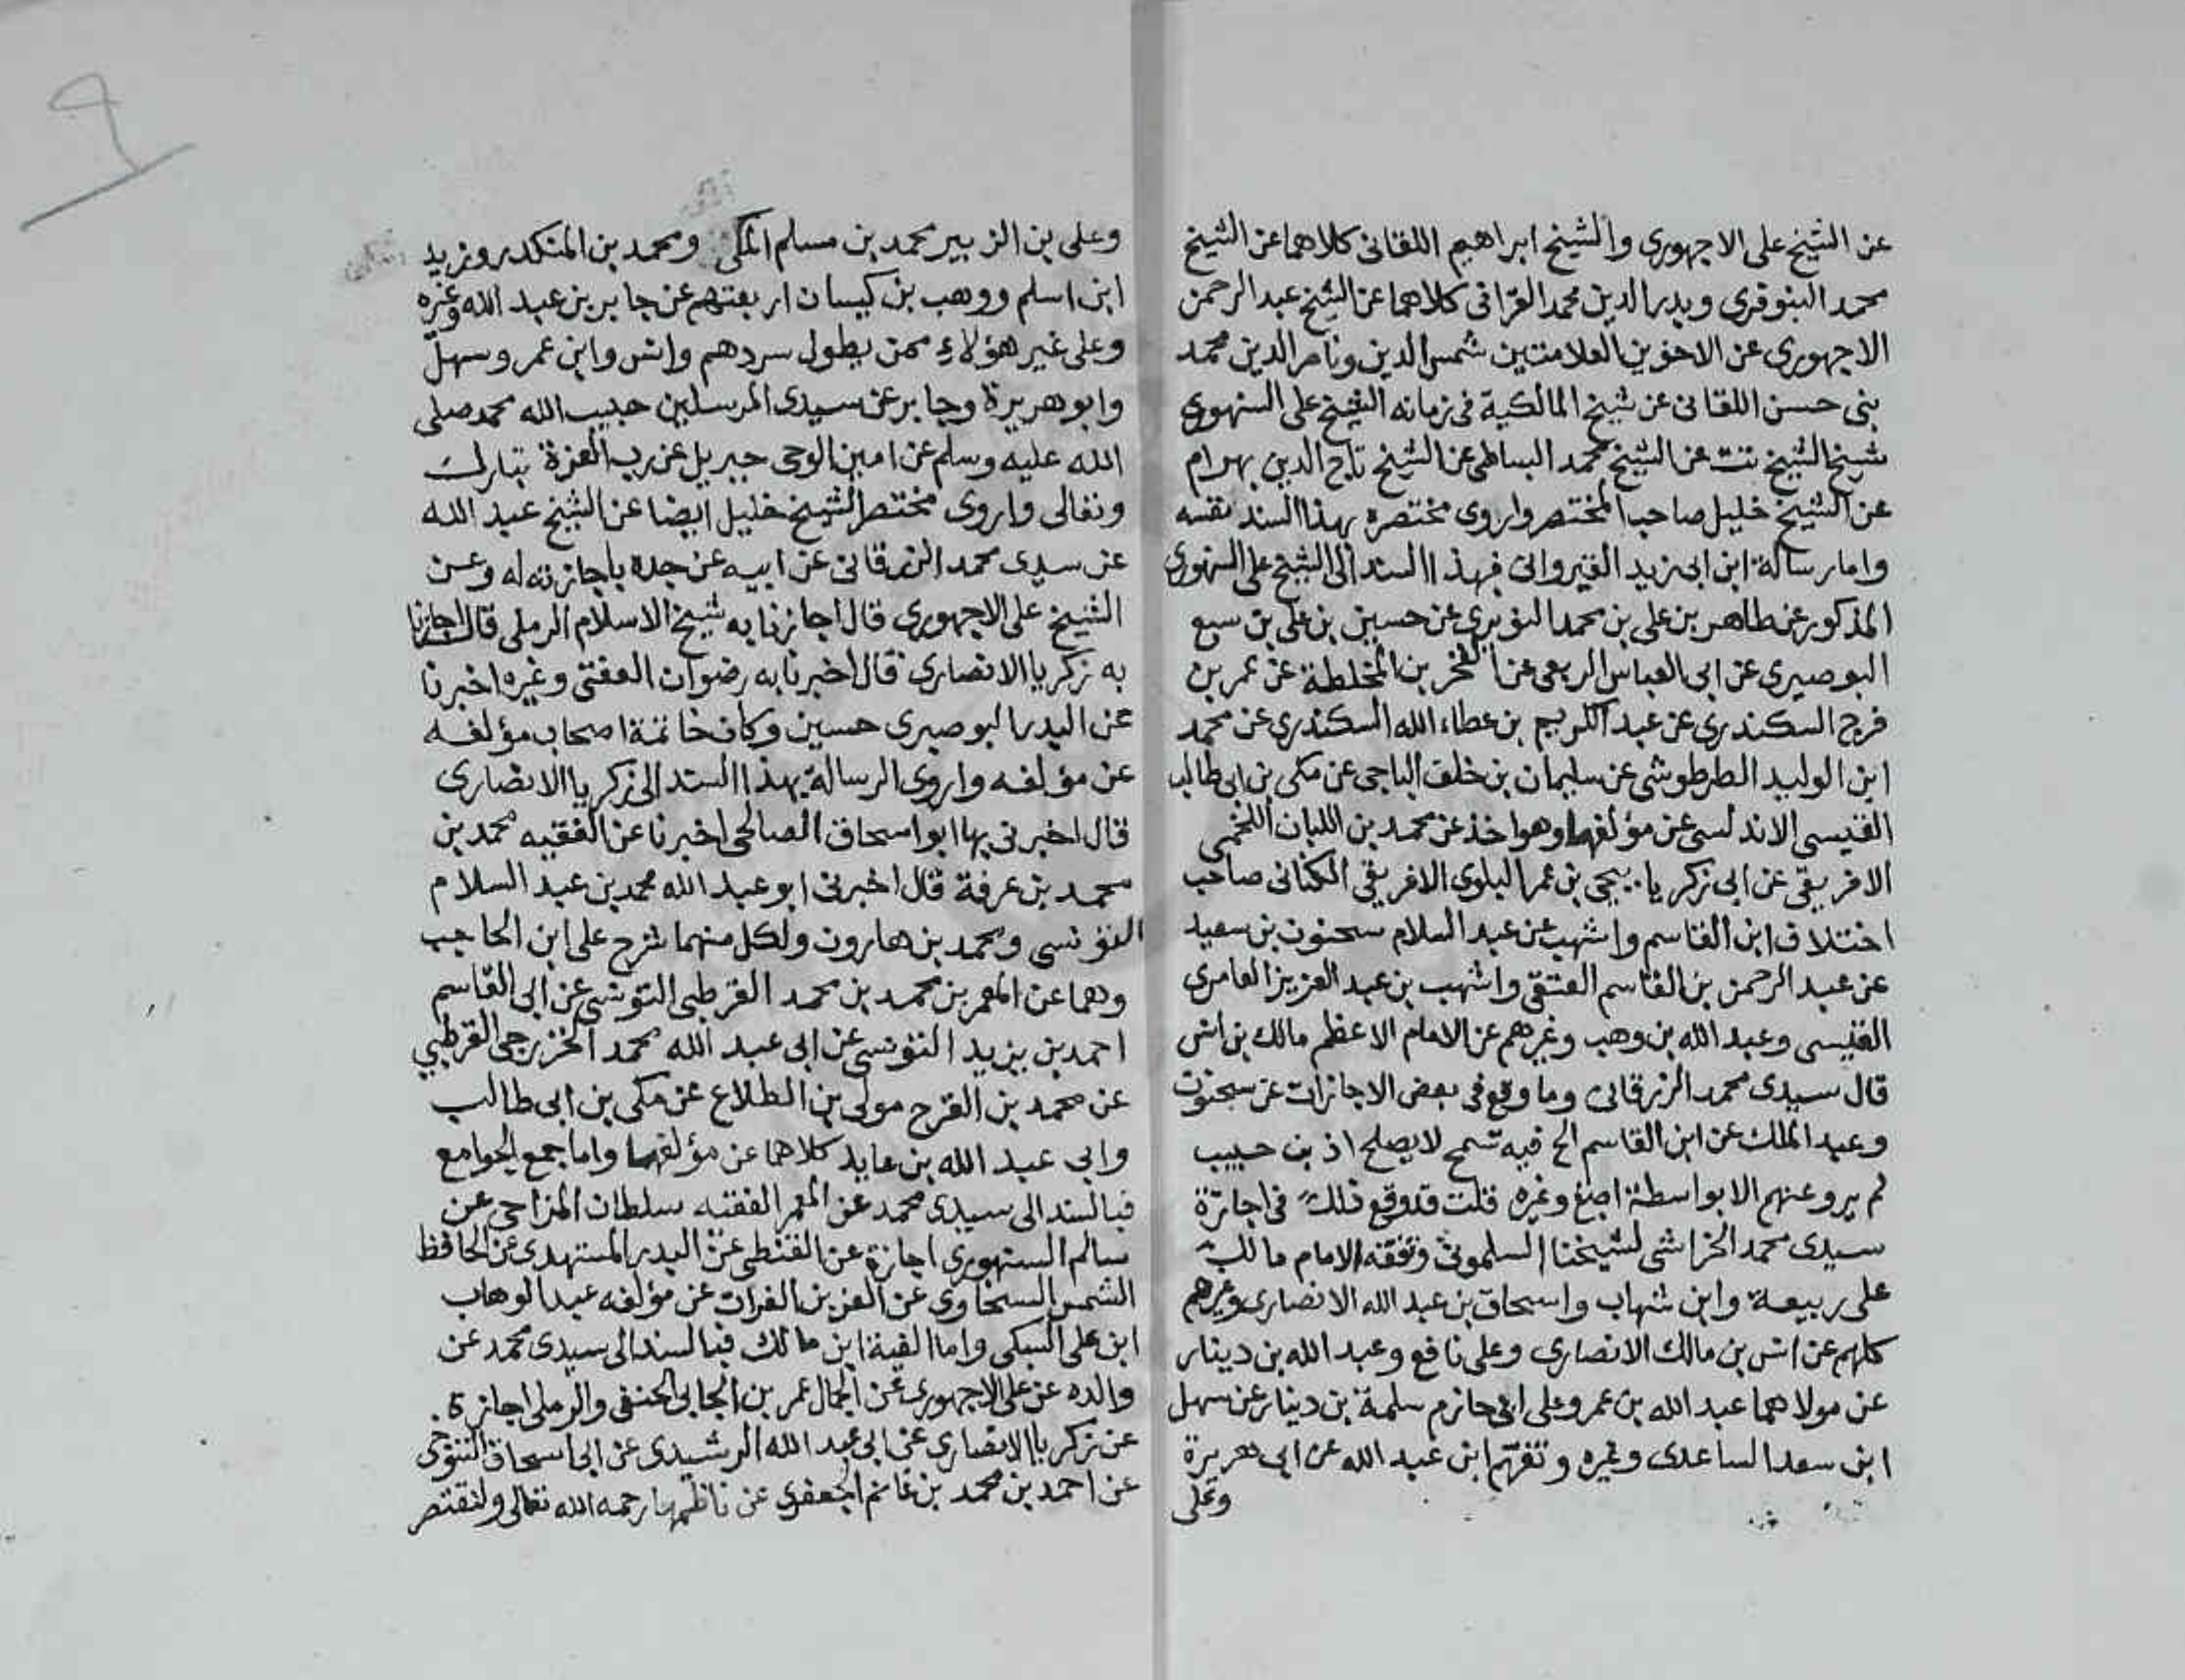 عن الشيخ على الاجهورى والشيخ ابراهيم اللقانى كلاهما عن الشيخ
محمد البنوفرى وبدر الدين محمد القرافى كلاهما عن الشيخ عبد الرحمن
الاجهورى عن الاخوين العلامتين شمس الدين وناصر الدين محمد
بنى حسن اللقانى عن شيخ المالكية فى زمانه الشيخ على السنهورى
شيخ الشيخ تت عن الشيخ محمد البساطى عن الشيخ تاج الدين بهرام
عن الشيخ خليل صاحب المختصر واروى مختصره بهذا السند نفسه
واما رسالة ابن ابى زيد القيروانى فبهذا السند الى الشيخ على السنهورى
المذكور عن طاهر بن على بن محمد النويرى عن حسين بن على بن سبع
البوصيرى عن ابى العباس الربعى عن الفخر بن المخلطة عن عمر بن
فرج السكندرى عن عبد الكريم بن عطاء الله السكندرى عن محمد
ابن الوليد الطرطوشى عن سليمان بن خلف الباجى عن مكى بن ابى طالب
القيسى الاندلسى عن مؤلفها وهو اخذ عن محمد بن اللبان اللخمى
الافريقى عن ابى زكريا يحيى بن عمر البلوى الافريقى الكنانى صاحب
اختلاف ابن القاسم واشهب عن عبد السلام سحنون بن سعيد
عن عبد الرحمن بن القاسم العتقى واشهب بن عبد العزيز العامرى
القيسى وعبد الله بن وهب وغيرهم عن الامام الاعظم مالك بن انس
قال سيدى محمد الزرقانى وما وقع فى بعض الاجازات عن سحنون
وعبد الملك عن ابن القاسم الخ فيه تسمح لا يصلح اذ بن حبيب
لم يرو عنهم الا بواسطة اصبغ وغيره قلت قد وقع ذلك فى اجازة
سيدى محمد الخراشى لشيخنا السلمونى وتفقه الامام مالك
على ربيعة وابن شهاب واسحاق بن عبد الله الانصارى وغيرهم
كلهم عن انس بن مالك الانصارى وعلى نافع وعبد الله بن دينار
عن مولاهما عبد الله بن عمر وعلى ابى حازم سلمة بن دينار عن سهل
ابن سعد الساعدى وغيره وتفقهم ابن عبد الله عن ابى هريرة
وعلى
وعلى بن الزبير محمد بن مسلم المكى ومحمد بن المنكدر وزيد
ابن اسلم ووهب بن كيسان اربعتهم عن جابر بن عبد الله وغيره
وعلى غير هؤلاء ممن يطول سردهم وانس وابن عمر وسهل
وابو هريرة وجابر عن سيدى المرسلين حبيب الله محمد صلى
الله عليه وسلم عن امين الوحى جبريل عن رب العزة تبارك
وتعالى واروى مختصر الشيخ خليل ايضا عن الشيخ عبد الله
عن سيدى محمد الزرقانى عن ابيه عن جده باجازته له وعن
الشيخ على الاجهورى قال اجازنا به شيخ الاسلام الرملى قال اجازنا
به زكريا الانصارى قال اخبرنا به رضوان العقبى وغيره اخبرنا
عن البدر البوصيرى حسين وكان خاتمة اصحاب مؤلفه
عن مؤلفه واروى الرسالة بهذا السند الى زكريا الانصارى
قال اخبرنى بها ابو اسحاق الصالحى اخبرنا عن الفقيه محمد بن
محمد بن عرفة قال اخبرنى ابو عبد الله محمد بن عبد السلام
التونسى ومحمد بن هارون ولكل منهما شرح على ابن الحاجب
وهما عن المعمر بن محمد بن محمد القرطبى التونسى عن ابى القاسم
احمد بن يزيد التونسى عن ابى عبد الله محمد الخزرجى القرطبى
عن محمد بن الفرج مولى بن الطلاع عن مكى بن ابى طالب
وابى عبد الله بن عابد كلاهما عن مؤلفها واما جمع الجوامع
فبالسند الى سيدى محمد عن المعمر الفقيه سلطان المزاحى عن
سالم السنهورى اجازة عن الغيطى عن البدر المشهدى عن الحافظ
الشمس السخاوى عن العز بن الفرات عن مؤلفه عبد الوهاب
ابن على السبكى واما الفية ابن مالك فبالسند الى سيدى محمد عن
والده عن على الاجهورى عن الجمال عمر بن الجابى الحنفى والرملى اجازة
عن زكريا الانصارى عن ابى عبد الله الرشيدى عن ابى اسحاق التنوخى
عن احمد بن محمد بن غانم الجعفرى عن ناظمها رحمه الله تعالى ولنقتصر